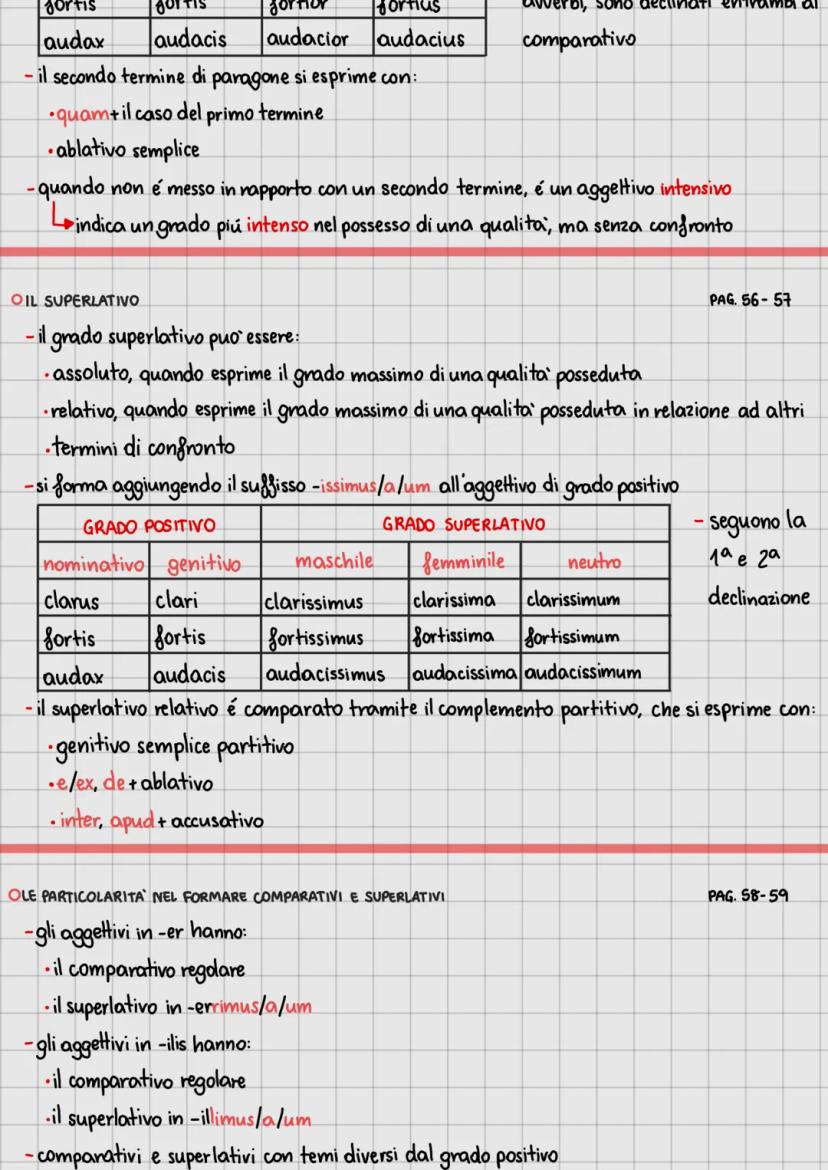 fortis fortis fortior fortius avverbi, sono declinati entrambi al
audax audacis audacior audacius comparativo
- il secondo termine di paragone si esprime con:
• quam + il caso del primo termine
• ablativo semplice
- quando non é messo in rapporto con un secondo termine, é un aggettivo intensivo
indica un grado piú intenso nel possesso di una qualita', ma senza confronto
IL SUPERLATIVO PAG. 56 - 57
- il grado superlativo puo' essere:
• assoluto, quando esprime il grado massimo di una qualita' posseduta
• relativo, quando esprime il grado massimo di una qualita' posseduta in relazione ad altri
• termini di confronto
- si forma aggiungendo il suffisso -issimus/a/um all'aggettivo di grado positivo
GRADO POSITIVO GRADO SUPERLATIVO - seguono la
nominativo genitivo maschile femminile neutro 1ª e 2ª
clarus clari clarissimus clarissima clarissimum declinazione
fortis fortis fortissimus fortissima fortissimum
audax audacis audacissimus audacissima audacissimum
- il superlativo relativo é comparato tramite il complemento partitivo, che si esprime con:
• genitivo semplice partitivo
• e/ex, de + ablativo
• inter, apud + accusativo
LE PARTICOLARITA' NEL FORMARE COMPARATIVI E SUPERLATIVI PAG. 58-59
- gli aggettivi in -er hanno:
• il comparativo regolare
• il superlativo in -errimus/a/um
- gli aggettivi in -ilis hanno:
• il comparativo regolare
• il superlativo in -illimus/a/um
- comparativi e superlativi con temi diversi dal grado positivo